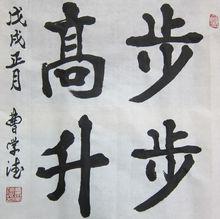 步步
高升
戊戌正月
曹学德